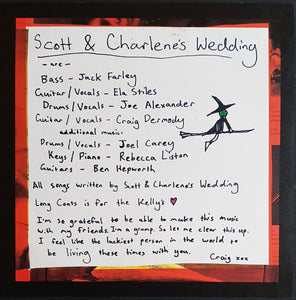 Scott & Charlene's Wedding
- are -
Bass - Jack Farley
Guitar/Vocals - Ela Stiles
Drums/Vocals - Joe Alexander
Guitar/Vocals - Craig Dermody
additional music:
Drums/Vocals - Joel Carey
Keys/Piano - Rebecca Liston
Guitars - Ben Hepworth
All songs written by Scott & Charlene's Wedding
Long Coats is for the Kelly's
I'm so grateful to be able to make this music
with my friends. I'm a gramp. So let me clear this up.
I feel like the luckiest person in the world to
be living these times with you.
Craig xox